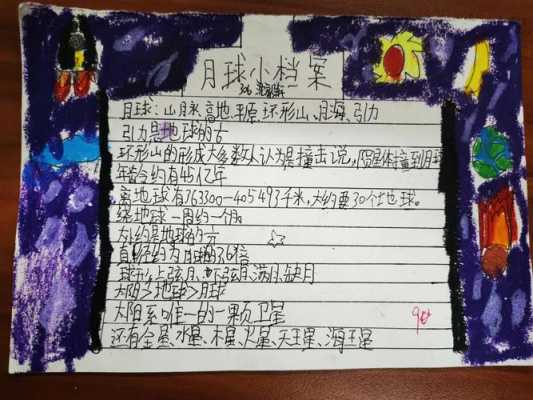 月球小档案
月球：山脉、高地、平原、环形山、月海、引力
引力是地球的
环形山的形成大多数人认为是撞击说，陨星体撞到月球
年龄合约有45亿年
离地球有363300-405493千米，大约要30个地球。
绕地球一周约一个月
大小约是地球的
直径约为
上弦月、下弦月、满月、缺月
太阳>地球>月球
太阳系唯一的一颗卫星
还有金星、水星、木星、火星、天王星、海王星